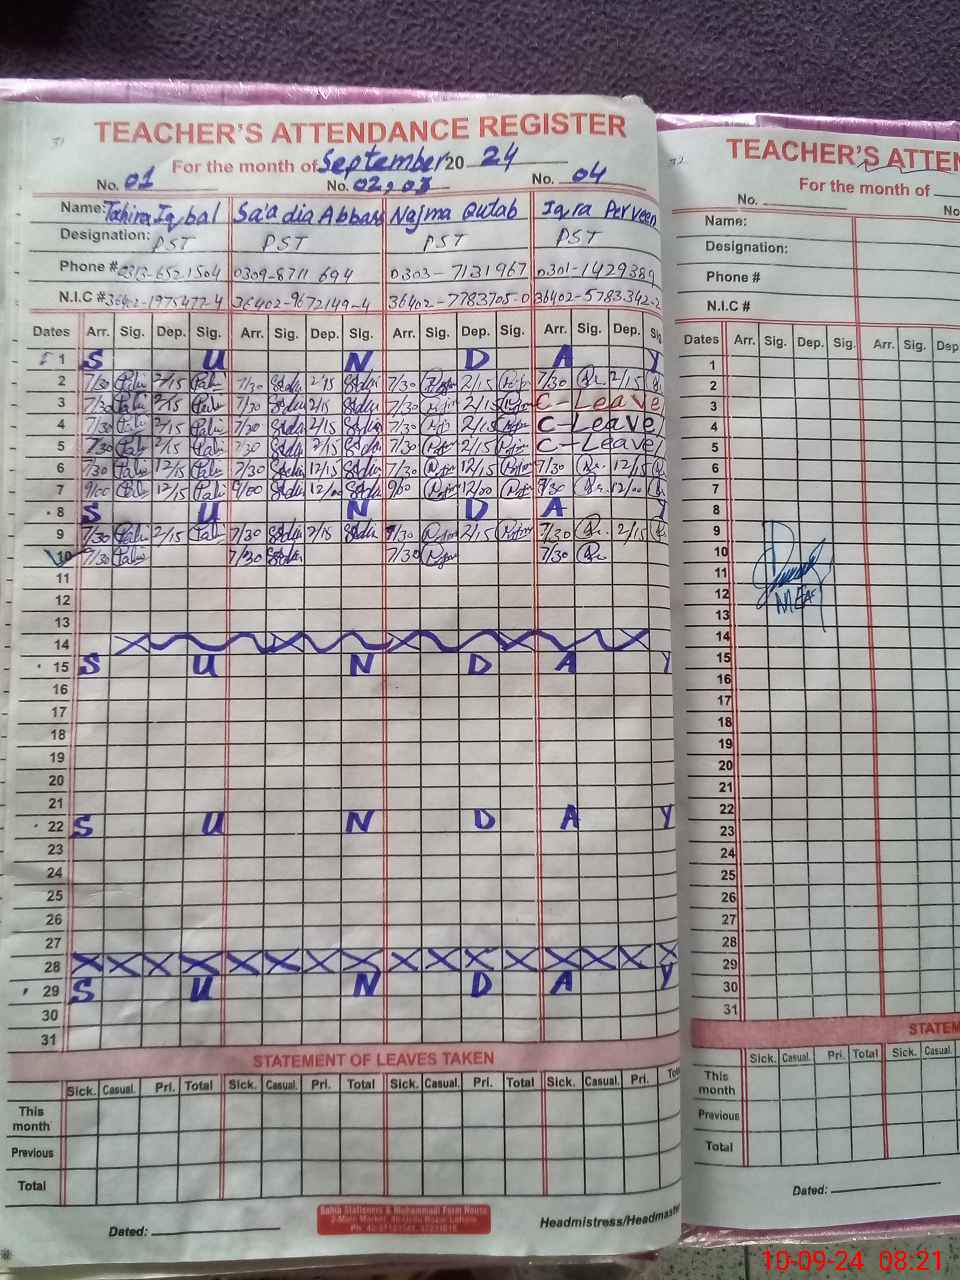 31
TEACHER'S ATTENDANCE REGISTER
For the month of September 20 24
No. 01 No. 02,03 No. 04
Name: Tahira Iqbal Sa'adia Abbass Najma Qutab Iqra Perveen
Designation: PST PST PST PST
Phone # 0313-6521504 0309-8711694 0303-7131967 0301-1429389
N.I.C # 36402-1975477-4 36402-9672149-4 36402-7783705-0 36402-5783342-2
Dates Arr. Sig. Dep. Sig. Arr. Sig. Dep. Sig. Arr. Sig. Dep. Sig. Arr. Sig. Dep. Sig
1 S U N D A Y
2 7/30 2/15 7/30 2/15 7/30 2/15 7/30 2/15
3 7/30 2/15 7/30 2/15 7/30 2/15 C-Leave
4 7/30 2/15 7/30 2/15 7/30 2/15 C-Leave
5 7/30 2/15 7/30 2/15 7/30 2/15 C-Leave
6 7/30 12/15 7/30 12/15 7/30 12/15 7/30 12/15
7 9/00 12/15 9/00 12/00 9/00 12/00 12/00
8 S U N D A Y
9 7/30 2/15 7/30 2/15 7/30 2/15 7/30 2/15
10 7/30 7/30 7/30 7/30
11
12
13
14
15 S U N D A Y
16
17
18
19
20
21
22 S U N D A Y
23
24
25
26
27
28
29 S U N D A Y
30
31
STATEMENT OF LEAVES TAKEN
Sick. Casual. Pri. Total Sick. Casual. Pri. Total Sick. Casual. Pri. Total Sick. Casual. Pri. Tot
This month
Previous
Total
Dated:
Headmistress/Headmaster
32
TEACHER'S ATTEN
For the month of
No. No
Name:
Designation:
Phone #
N.I.C #
Dates Arr. Sig. Dep. Sig. Arr. Sig. Dep
1
2
3
4
5
6
7
8
9
10
11
12 MEA
13
14
15
16
17
18
19
20
21
22
23
24
25
26
27
28
29
30
31
STATEM
Sick. Casual. Pri. Total Sick. Casual.
This month
Previous
Total
Dated:
10-09-24 08:21